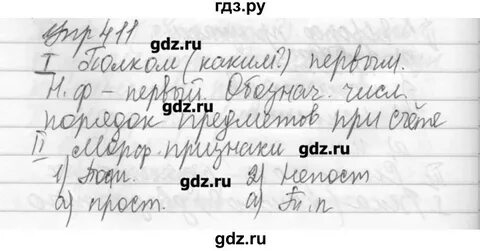 гдз.ру
Упр 411
I Полком (каким?) первым.
Н.ф – первый. Обознач. числ.
порядок предметов при счёте
II Морф. признаки
1) Пост. 2) Непост
а) прост. а) Тв.п
gdz.ru
gdz.ru
gdz.ru
gdz.ru
gdz.ru
gdz.ru